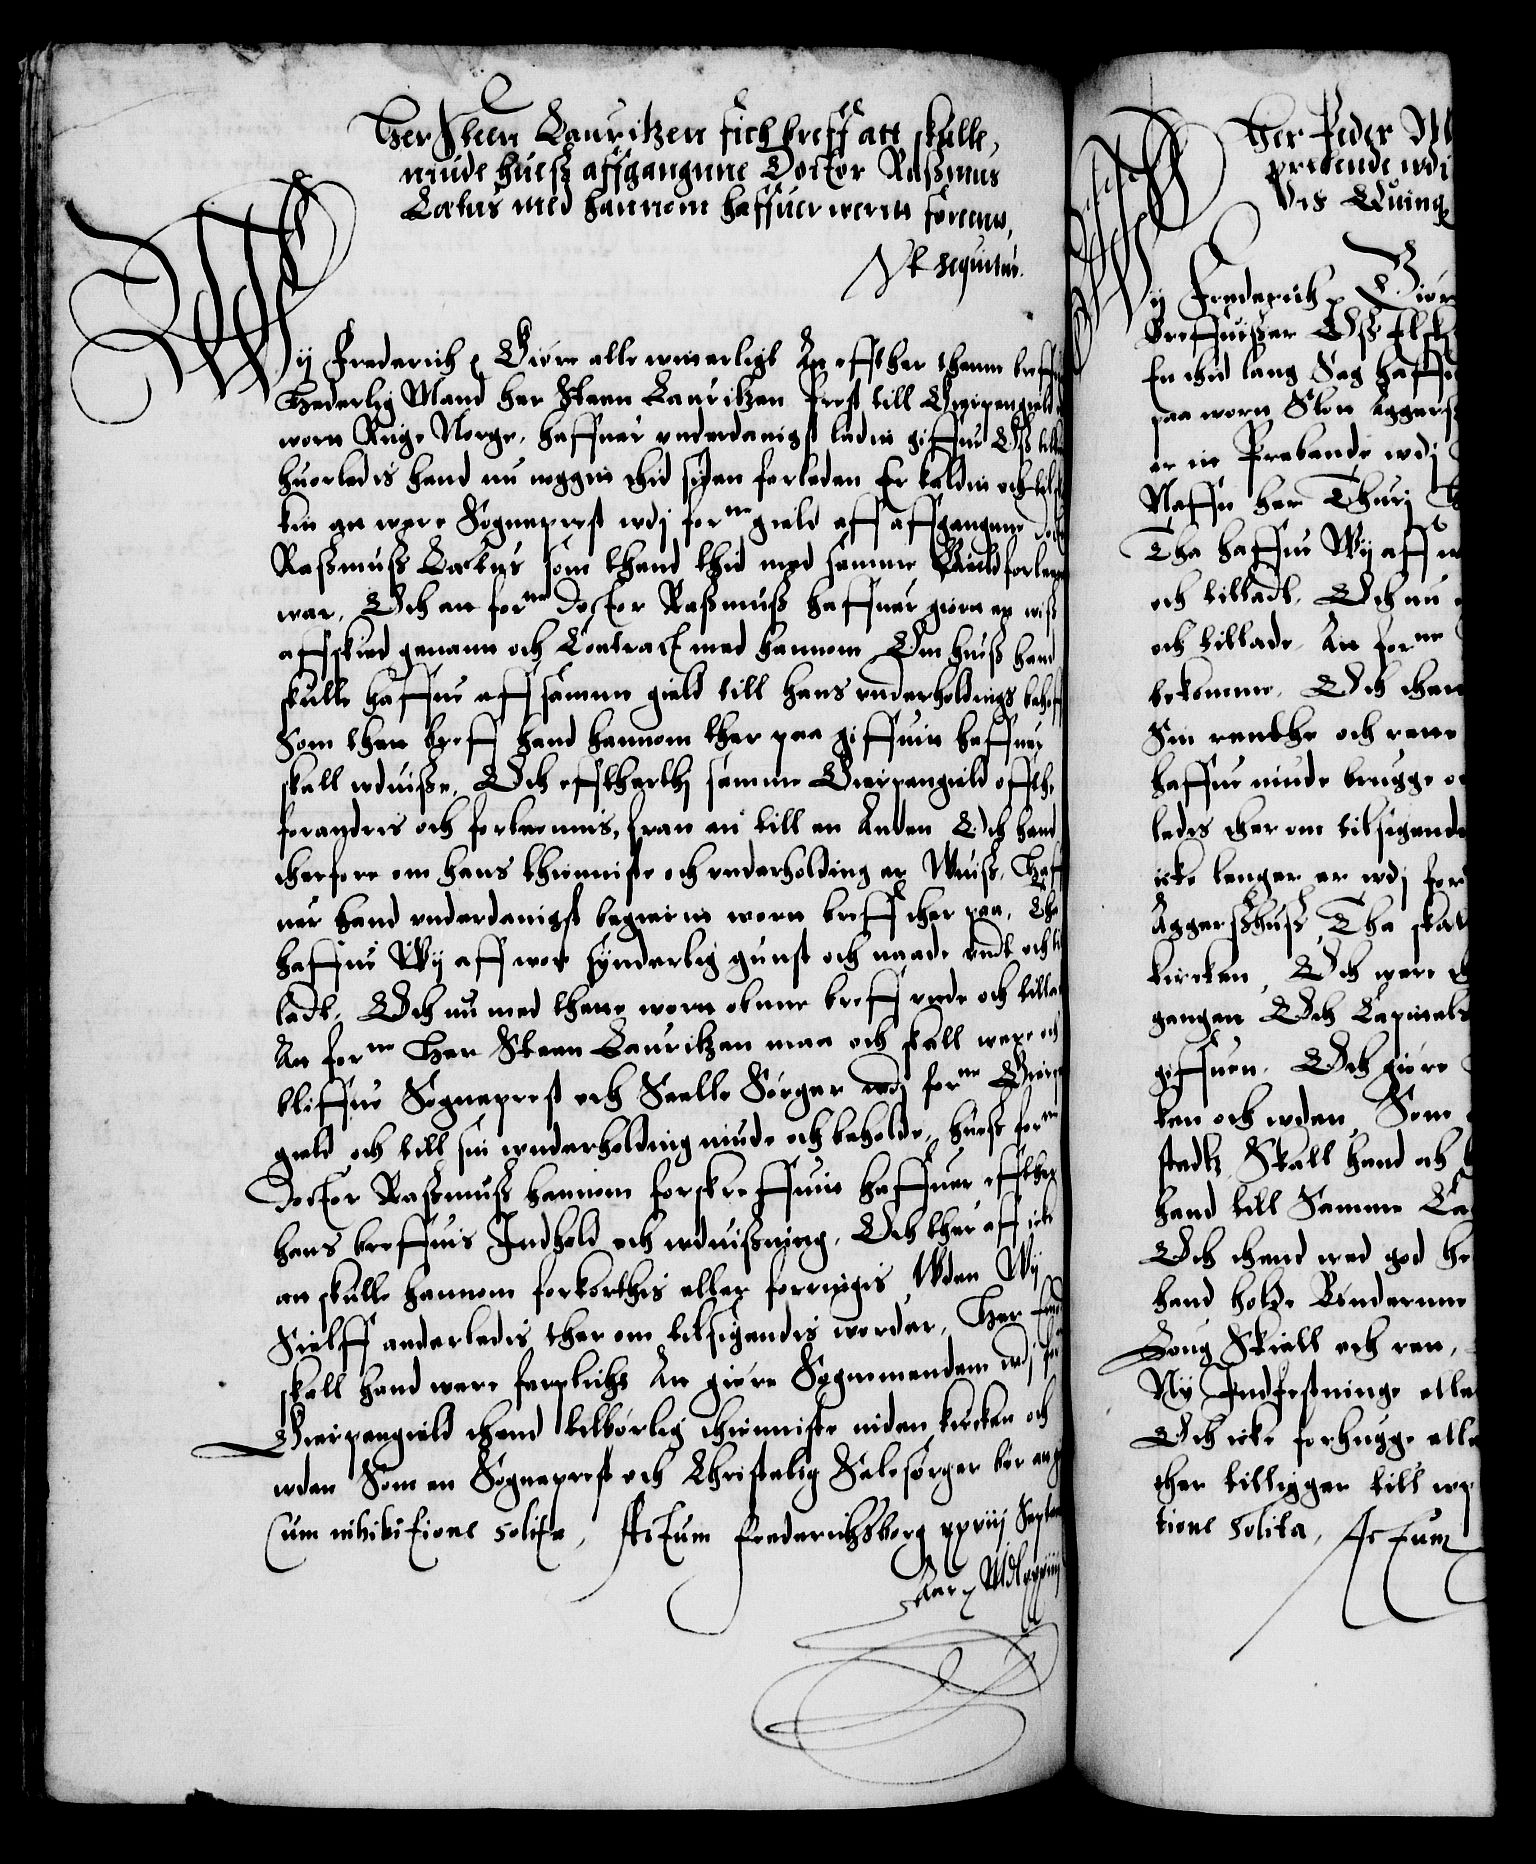 Her Steen Lauritzen fich breff att skulle,
niude huesß affgangnne Doctor Raßmus
Lætus med hannom haffuer werit foreens,
Vt sequitur.
Wij Frederich ꝛ Giøre alle witterligt At effther thenne breff
Hederlig Mand her Steen Lauritzen Prest till Gierpengield
worn Rige Norge, haffuer vnderdanigst ladit giffue Oß till
huorledis hand nu nogen thid siden forleden Er kaldit och
tin att were Sogneprest wdj forne gield aff affgangne Doctor
Raßmuß Lætus som thend thid med samme Gield forlent
war, Och att forne Doctor Raßmuß haffuer giort en wiß
affskied genann och Contract med hannom Om hueß hand
skulle haffue aff samme gield till hans vnderholdings behoff
Som thett breff hand hannom ther paa giffuit haffuer
skall wduiße, Och effthertj samme Gierpengield offthe
forandres och forlennis, fran en till en Anden Och hand
therfore om hans thienniste och vnderholding er Wuiß, Haff
uer hand vnderdanigst begierit worn breff ther paa, Tha
haffue Wij aff wor synderlig gunst och naade vndt och til
ladt, Och nu med thette wort obne breff vnde och tillade
At forne Her Steen Lauritzen maa och skall were och
bliffue Sogneprest och Sielle Sørger wdj forne Gierpen
gield och till sin wnderholding niude och beholde, hueß forne
Doctor Raßmuß hannom forskreffuit haffuer effther
hans breffuis Indhold och wduißning, Och ther aff icke
att skulle hannom forkorthis eller forringis Wden Wij
Sielff anderledis ther om tilsigendis worder, Ther
skall hand were forplicht At giøre Sognemendene wdj
Gierpengield thend tilbørlig thienniste inden kircken och
wden Som en Sogneprest och Christelig Sælesørger bør
Cum inhibitione solita, Actum Frederichsborg xxviij Septem
Aar ꝛ Mdlxxxiij

Her Peder M
prebende wdi
Vts Quinq
ij Frederich ꝛ Giør
breffuißer Oß Elsk
En thid lang Sag haffu
paa worn Slott Aggerß
er en Prebende wdj
Naffn her Thurj
Tha haffue Wij aff
och tilladt, Och nu
och tillade, At forne
bekomme, Och then
Sin renthe och rette
haffue niude brugge
ledis ther om tilsigende
icke lenger er wdj for
Aggerßhuß, Tha skal
kircken, Och were
gangen Och Capitels
giffuen, Och giøre
ken och wden, Som
stedtz Skall hand och
hand till Samme Ca
Och thend wed god he
hand holde Bønderne
Loug Skiell och ret,
Ny Indfestninge elle
Och icke forhugge elle
ther tilligger till
tione solita, Actum